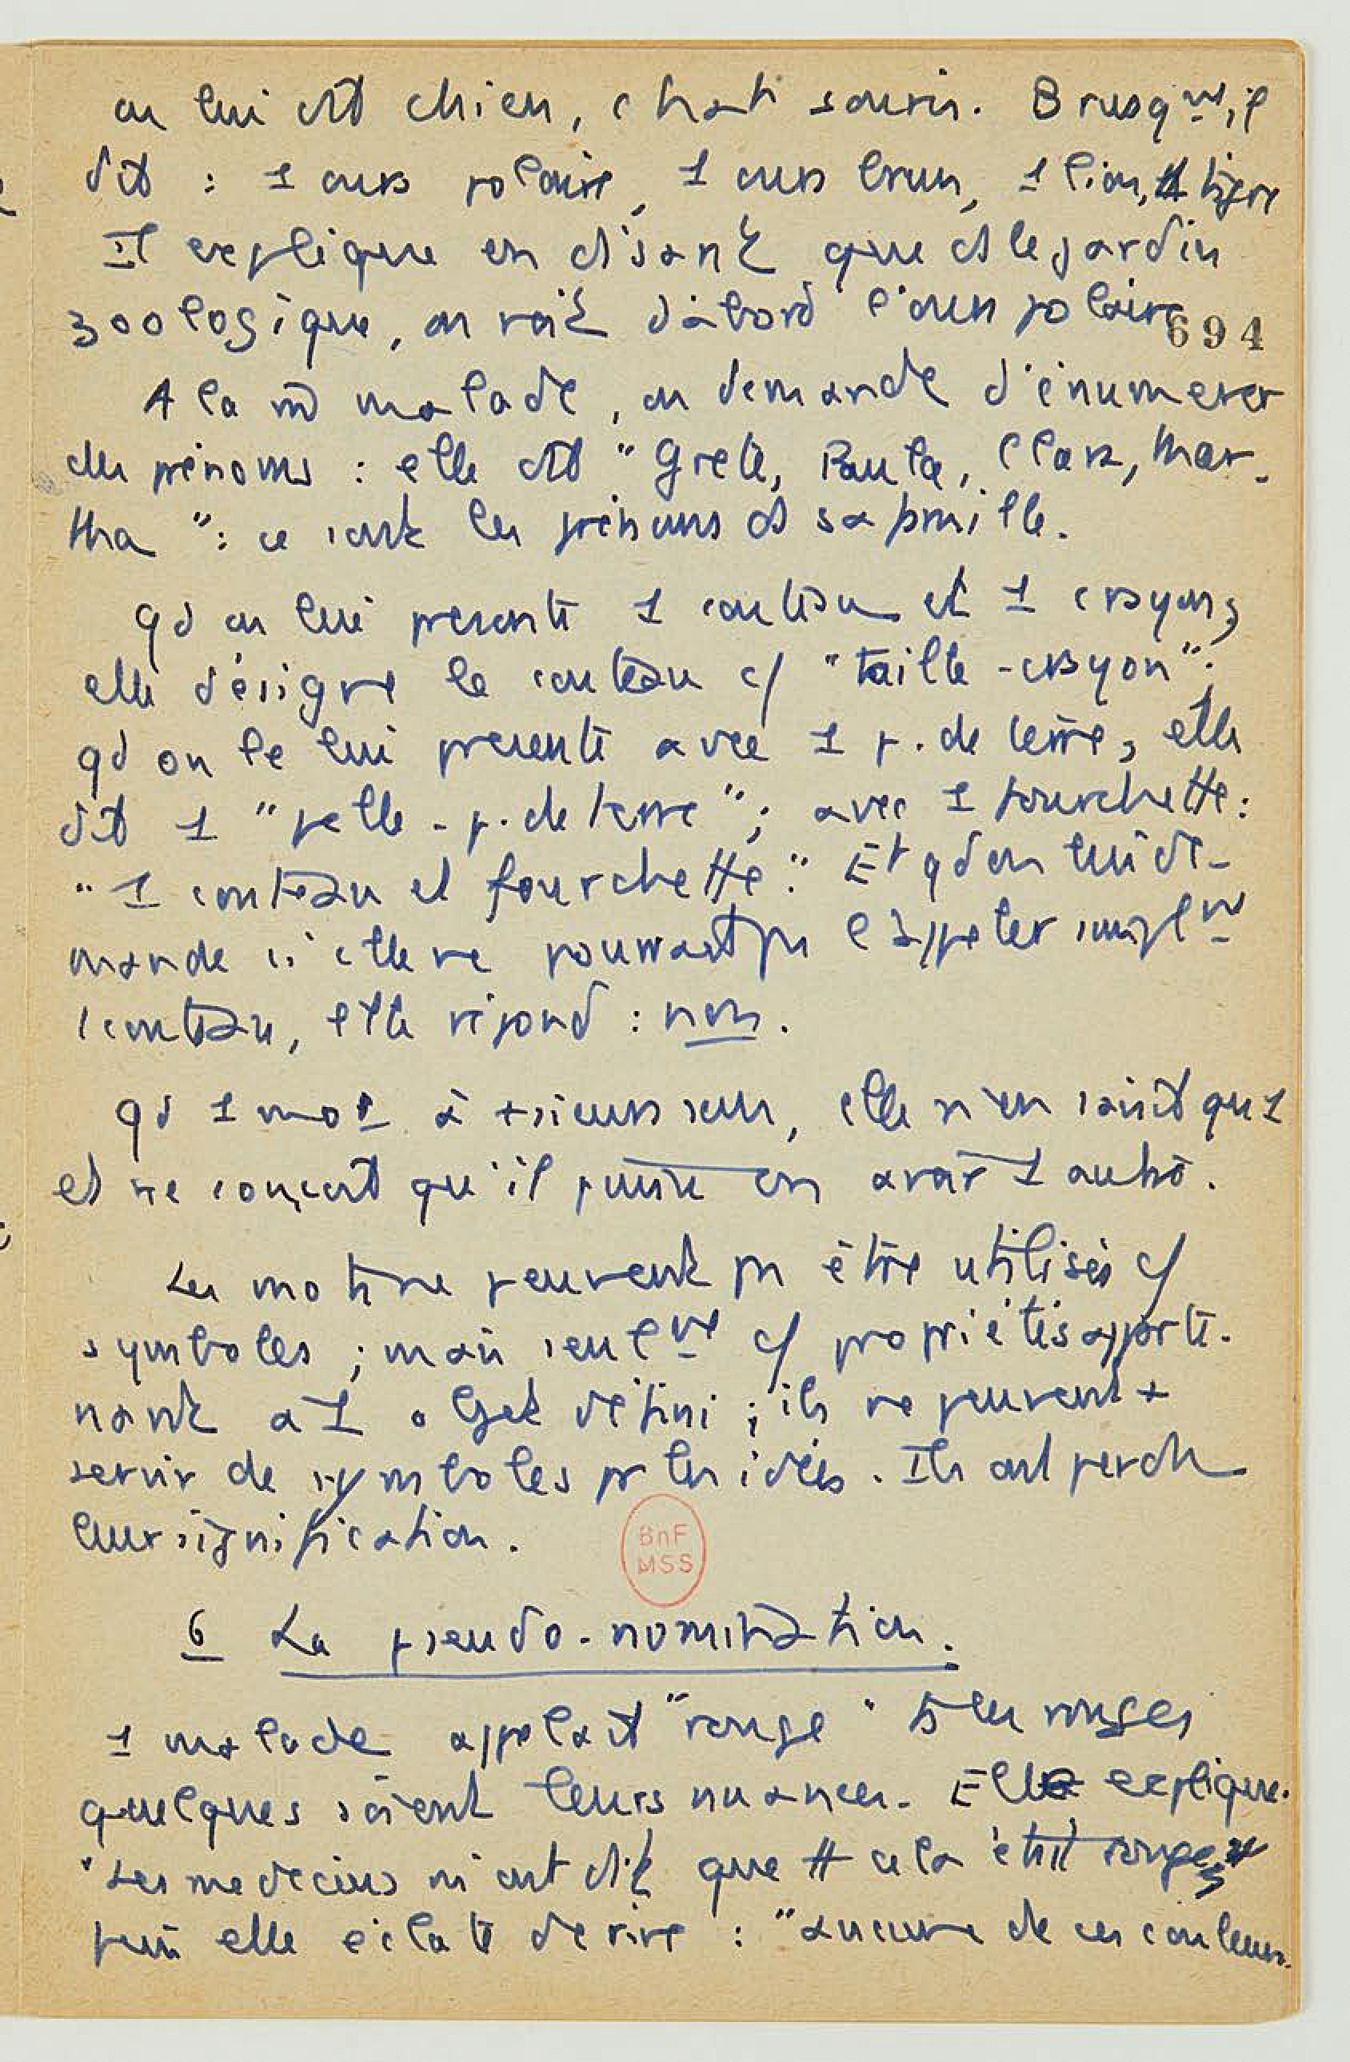 on lui dit chien, chat souris. Brusqt, il
dit : 1 ours polaire, 1 ours brun, 1 lion, 1 tigre
Il explique en disant que ds le jardin
zoologique, on voit d'abord l'ours polaire
694
A la m̄ malade, on demande d'énumerer
des prénoms : elle dit "Grete, Paula, Clara, Mar-
tha" : ce sont les prénoms ds sa famille.
qd on lui presente 1 couteau et 1 crayon,
elle désigne le couteau c/ "taille-crayon" ;
qd on le lui presente avec 1 p. de terre, elle
dit 1 "pelle-p. de terre" ; avec 1 fourchette :
"1 couteau et fourchette". Et qd on lui de-
mande si elle ne pourrait ps l'appeler simplt
1 couteau, elle répond : non.
qd 1 mot a +sieurs sens, elle n'en saisit qu'1
et ne conçoit qu'il puisse en avoir 1 autre.
Les mots ne peuvent ps être utilisés c/
symboles ; mais seult c/ propriétés apparte-
nant à 1 objet défini ; ils ne peuvent +
servir de symboles pr les idées. Ils ont perdu
leur signification.
BnF
MSS
6 La pseudo-nomination.
1 malade appelait "rouge" ts les rouges
quelques soient leurs nuances. Elle explique.
"Les medecins m'ont dit que tt cela était rouge"
puis elle éclate de rire : "aucune de ces couleurs